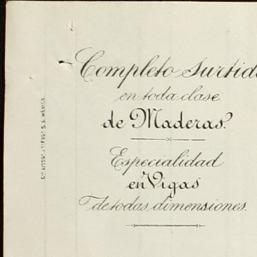 Completo Surtido
en toda clase
de Maderas.
Especialidad
en Vigas
de todas dimensiones.